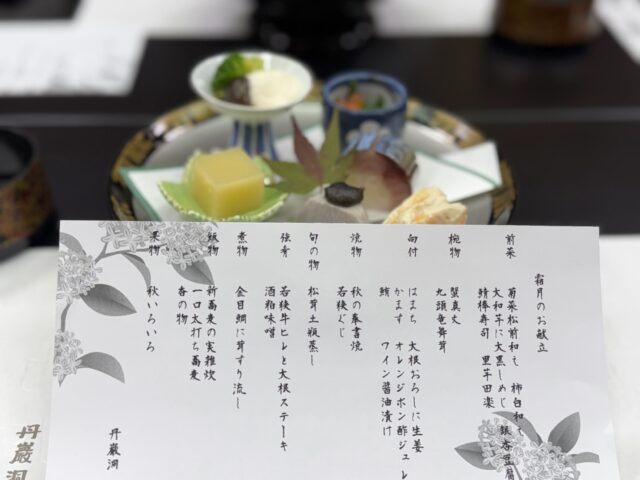 霜月のお献立
前菜　菊菜松前和え　柿白和え　銀杏豆腐
大和芋に大黒しめじ
鯖棒寿司　里芋田楽
椀物　蟹真丈
九頭竜舞茸
向付　はまち　大根おろしに生姜
かます　オレンジポン酢ジュレ
鮪　ワイン醤油漬け
焼物　秋の奉書焼
若狭ぐじ
旬の物　松茸土瓶蒸し
強肴　若狭牛ヒレと大根ステーキ
酒粕味噌
煮物　金目鯛に茸すり流し
飯物　新蕎麦の実雑炊
一口太打ち蕎麦
香の物
果物　秋いろいろ
丹巌洞
丹巌洞